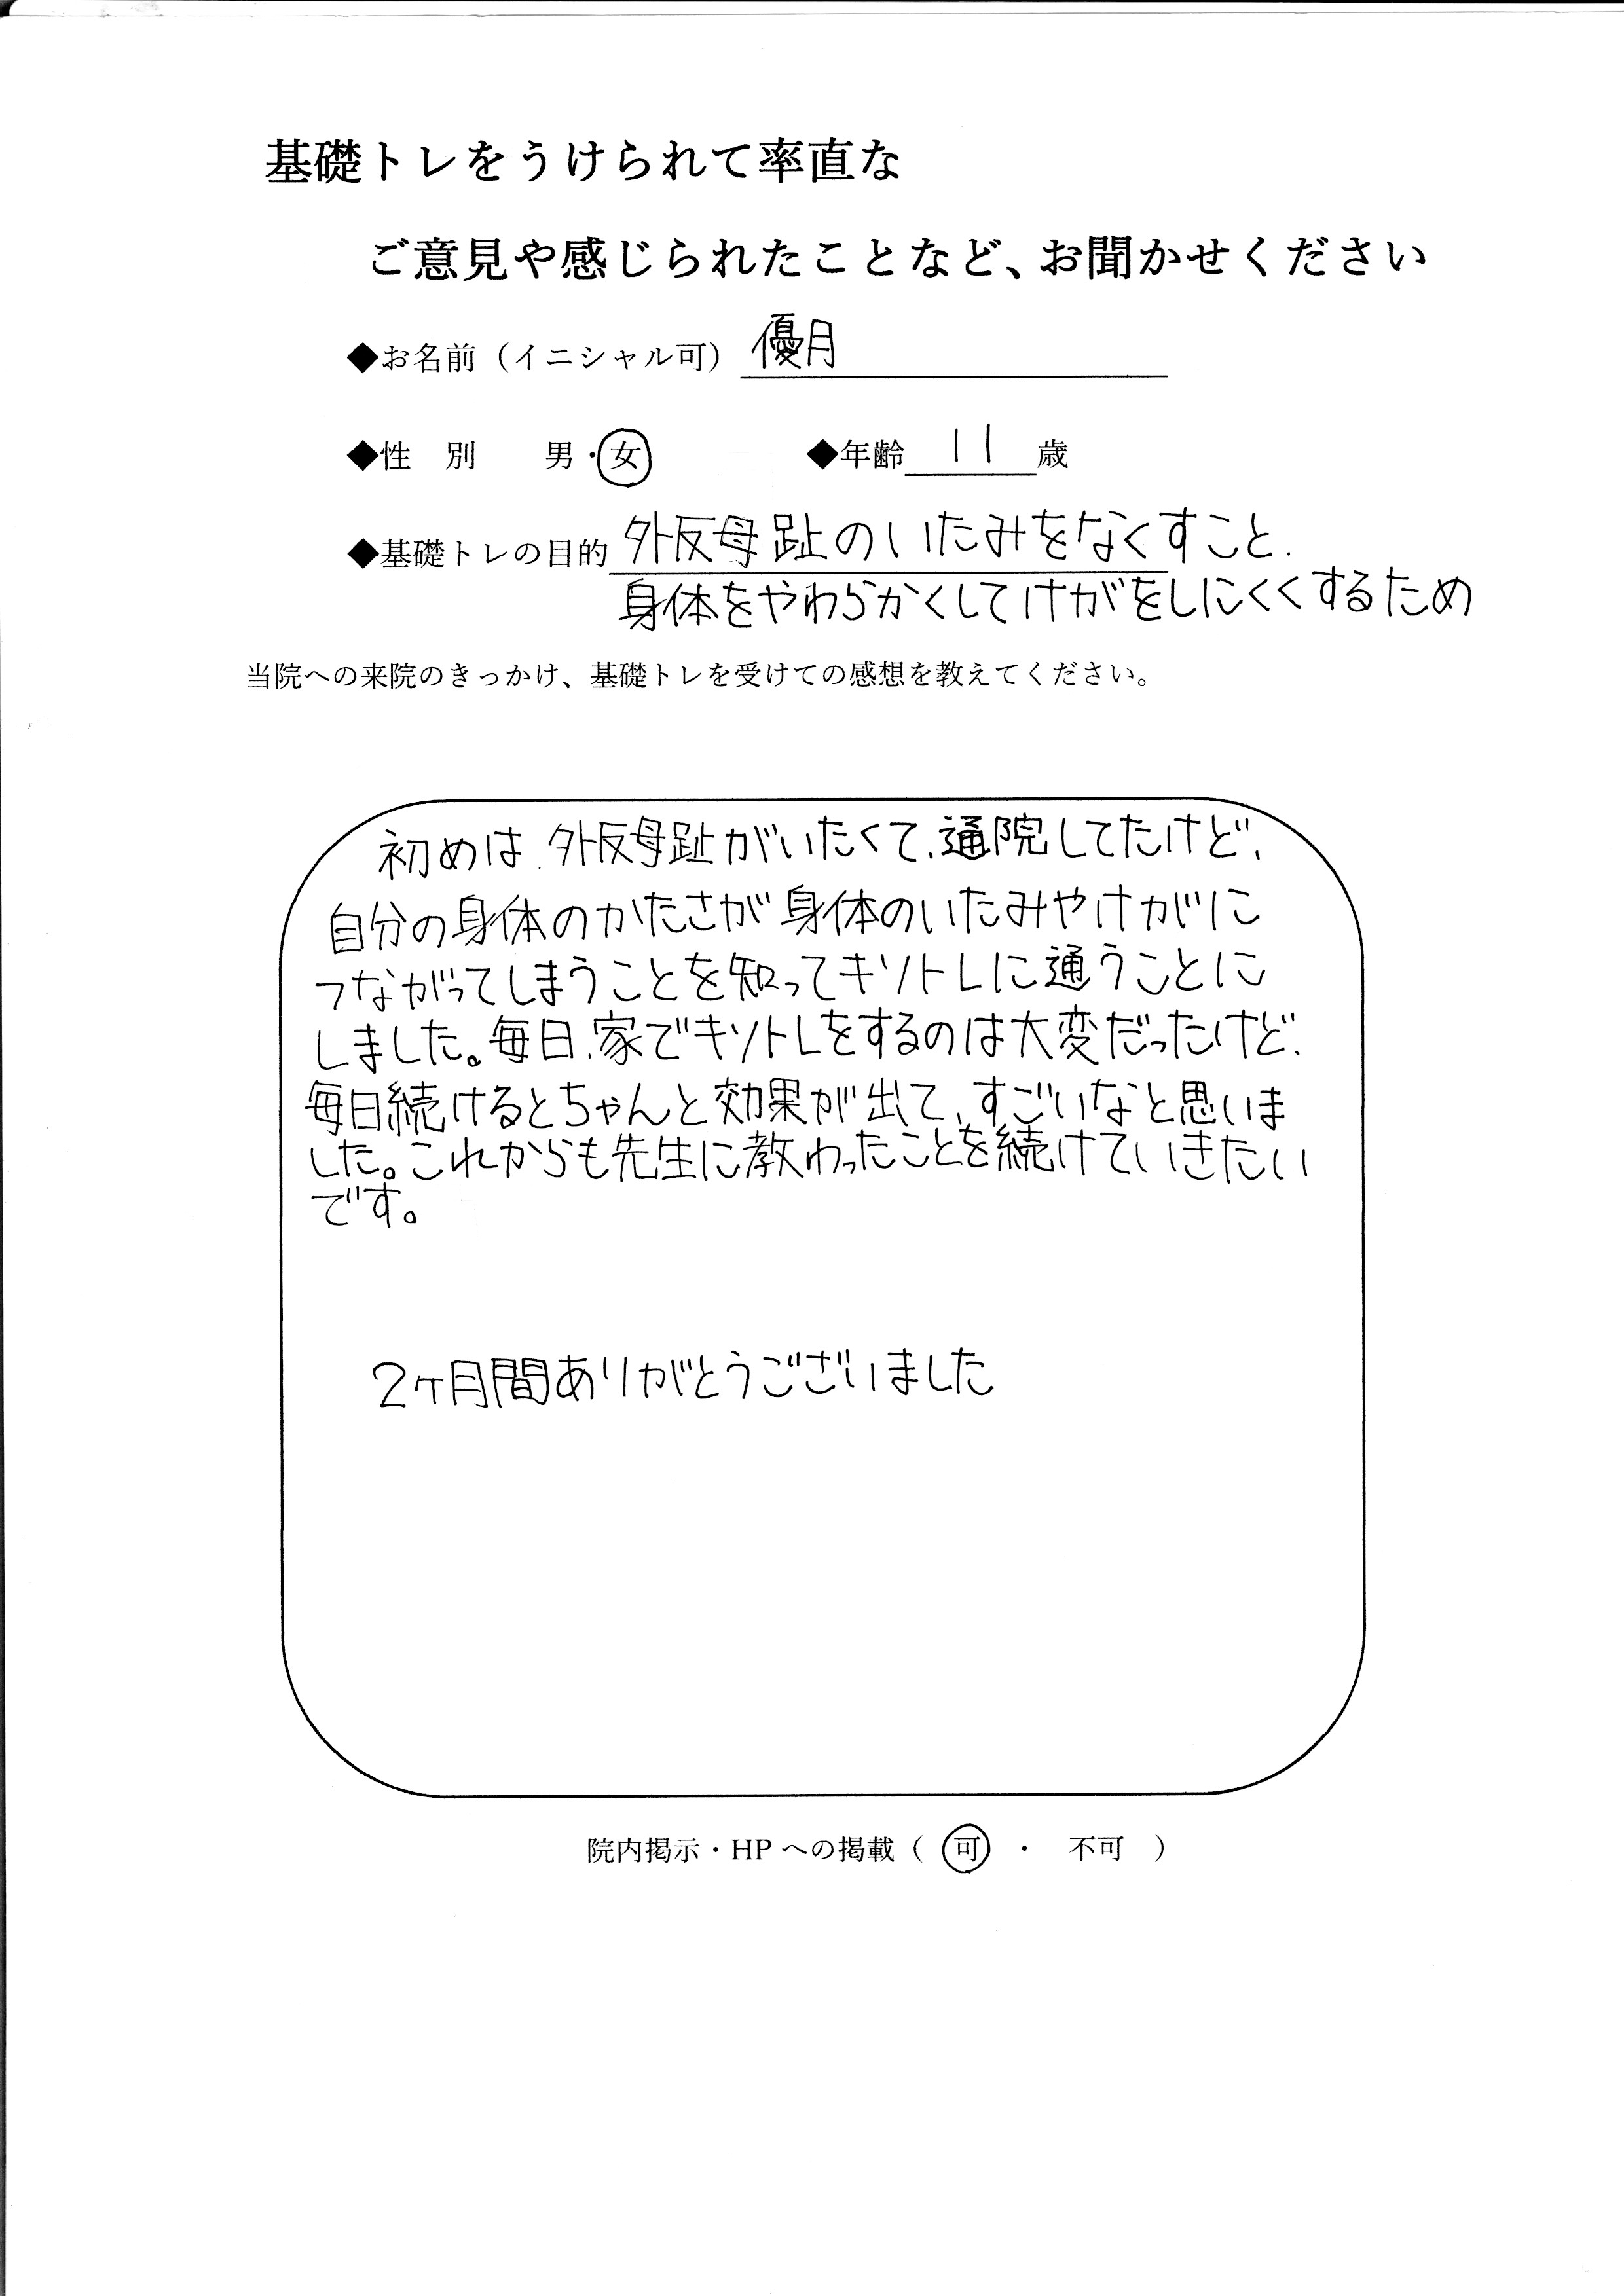 基礎トレをうけられて率直な
ご意見や感じられたことなど、お聞かせください
◆お名前（イニシャル可） 優月
◆性　別　　男・女　　◆年齢 11 歳
◆基礎トレの目的 外反母趾のいたみをなくすこと、
身体をやわらかくしてけがをしにくくするため
当院への来院のきっかけ、基礎トレを受けての感想を教えてください。
初めは、外反母趾がいたくて、通院してたけど、
自分の身体のかたさが身体のいたみやけがに
つながってしまうことを知ってキソトレに通うことに
しました。毎日、家でキソトレをするのは大変だったけど、
毎日続けるとちゃんと効果が出て、すごいなと思いま
した。これからも先生に教わったことを続けていきたい
です。
2ヶ月間ありがとうございました
院内掲示・HP への掲載（ 可 ・ 不可 ）